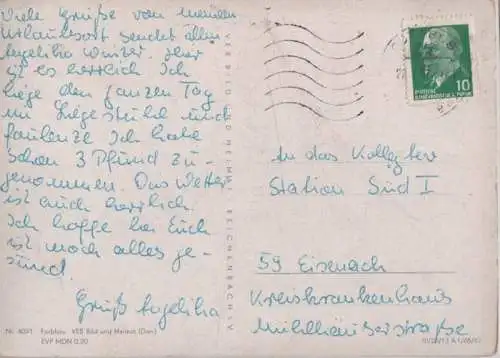 Viele Grüße von meinem
Urlaubsort sendet allen
Angelika Winter. Hier
ist es herrlich Ich
liege den ganzen Tag
im Liegestuhl und
faulenze Ich habe
schon 3 Pfund zu-
genommen. Das Wetter
ist auch herrlich.
Ich hoffe bei Euch
ist noch alles ge-
sund.
Gruß Angelika
Nr. 409/1 Farbfoto: VEB Bild und Heimat
EVP MDN 0,20
VEB BILD UND HEIMAT REICHENBACH I. V.
10
An das Kollektiv
Station Süd I
59 Eisenach
Kreiskrankenhaus
Mühlhäuserstraße